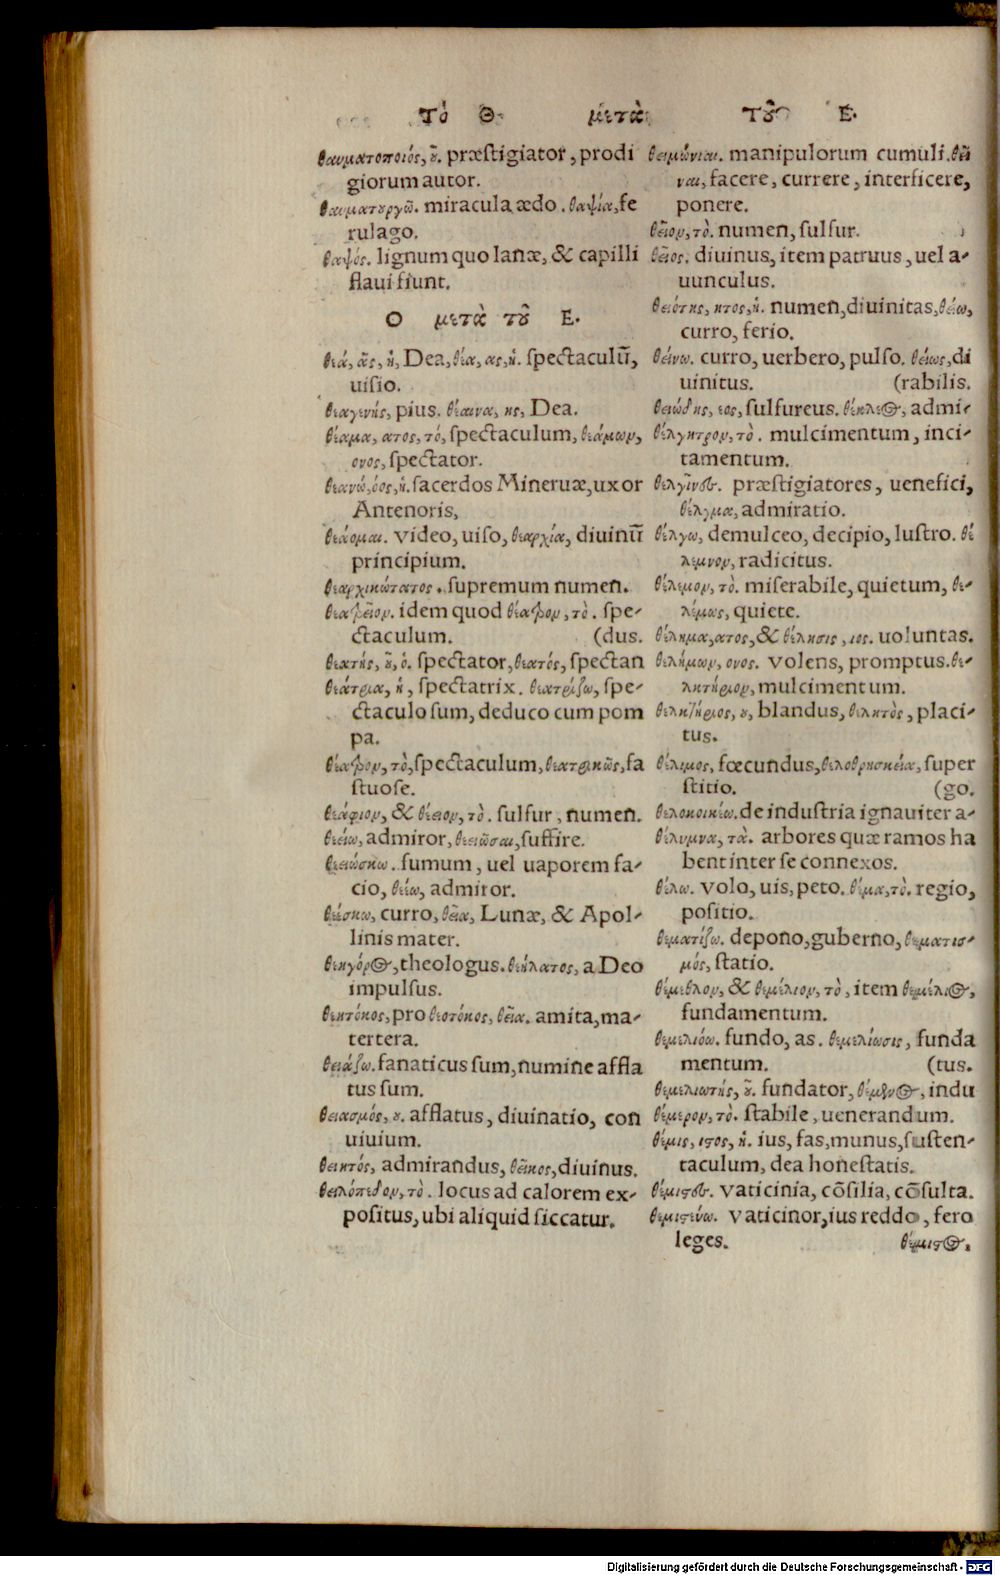 Τὸ Θ. μετὰ τοῦ Ε.
θαυματοποιός, ȣ͂. præstigiator, prodi
giorum autor.
θαυματȣργῶ. miracula ædo. θαψία, fe
rulago.
θαψός. lignum quo lanæ, & capilli
flaui fiunt.
Θ μετὰ τȣ͂ Ε.
θεά, ᾶς, ἡ, Dea, θέα, ας, ἡ. spectaculũ,
uisio.
θεαγενής, pius. θέαινα, ης, Dea.
θέαμα, ατος, τό, spectaculum, θεάμων,
ονος, spectator.
θεανώ, όος, ἡ. sacerdos Mineruæ, uxor
Antenoris,
θεάομαι. video, uiso, θεαρχία, diuinũ
principium.
θεαρχικώτατος. supremum numen.
θεατρεῖον. idem quod θέατρον, τὸ. spe-
ctaculum. (dus.
θεατής, ȣ͂, ὁ. spectator, θεατός, spectan
θεάτρια, ἡ, spectatrix. θεατρίζω, spe-
ctaculo sum, deduco cum pom
pa.
θέατρον, τὸ, spectaculum, θεατρικῶς, fa
stuose.
θεάφιον, & θέειον, τὸ. sulfur, numen.
θεέω, admiror, θεειῶσαι, suffire.
θεειώσκω. fumum, uel uaporem fa-
cio, θεέω, admiror.
θεέσκω, curro, θεῖα, Lunæ, & Apol-
linis mater.
θεηγόρος, theologus. θεήλατος, a Deo
impulsus.
θεητόκος, pro θεοτόκος, θεῖα. amita, ma-
tertera.
θειάζω. fanaticus sum, numine affla
tus sum.
θειασμός, ȣ. afflatus, diuinatio, con
uiuium.
θεικτός, admirandus, θεῖκος, diuinus.
θειλόπεδον, τὸ. locus ad calorem ex-
positus, ubi aliquid siccatur.
θειμώνιαι. manipulorum cumuli. θεῖ
ναι, facere, currere, interficere,
ponere.
θεῖον, τὸ. numen, sulfur.
θεῖος. diuinus, item patruus, uel a-
uunculus.
θειότης, ητος, ἡ. numen, diuinitas, θείω,
curro, ferio.
θείνω. curro, uerbero, pulso. θείως, di
uinitus. (rabilis.
θειώδης, εος, sulfureus. θέκελος, admi-
θέλγητρον, τὸ. mulcimentum, inci-
tamentum.
θελγῖνες. præstigiatores, uenefici,
θέλγμα, admiratio.
θέλγω, demulceo, decipio, lustro. θέ
λεμνον, radicitus.
θέλεμον, τὸ. miserabile, quietum, θε-
λέμως, quiete.
θέλημα, ατος, & θέλησις, εος. uoluntas.
θελήμων, ονος. volens, promptus. θε-
λητήριον, mulcimentum.
θελητήριος, ȣ, blandus, θελητὸς, placi-
tus.
θέλιμος, fœcundus, θελοθρησκεία, super
stitio. (go.
θελοκοικέω. de industria ignauiter a-
θέλυμνα, τὰ. arbores quæ ramos ha
bent inter se connexos.
θέλω. volo, uis, peto. θέμα, τὸ. regio,
positio.
θεματίζω. depono, guberno, θεματισ-
μός, statio.
θέμεθλον, & θεμέλιον, τὸ, item θεμέλιος,
fundamentum.
θεμελιόω. fundo, as. θεμελίωσις, funda
mentum. (tus.
θεμελιωτής, ȣ͂. fundator, θέμενος, indu
θέμερον, τὸ. stabile, uenerandum.
θέμις, ιστος, ἡ. ius, fas, munus, susten-
taculum, dea honestatis.
θέμιστες. vaticinia, cõsilia, cõsulta.
θεμιστεύω. vaticinor, ius reddo, fero
leges. θέμιστος,
Digitalisierung gefördert durch die Deutsche Forschungsgemeinschaft - DFG